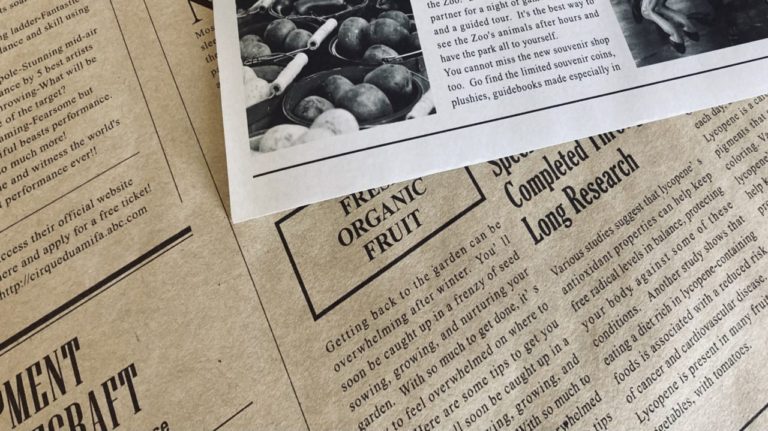 ng ladder-Fantastic
dance and skill using
pole-Stunning mid-air
ance by 5 best artists
hrowing-What will be
e of the target?
aming-Fearsome but
iful beasts performance.
o much more!
e and witness the world's
d performance ever!!
access their official website
here and apply for a free ticket!
http://cirqueduamifa.abc.com
PMENT
ECRAFT
the Zoo.
partner for a night of
and a guided tour. It's the best way to
see the Zoo's animals after hours and
have the park all to yourself.
You cannot miss the new souvenir shop
too. Go find the limited souvenir coins,
plushies, guidebooks made especially in
FRESH
ORGANIC
FRUIT
Getting back to the garden can be
overwhelming after winter. You'll
soon be caught up in a frenzy of seed
sowing, growing, and nurturing your
garden. With so much to get done, it's
to feel overwhelmed on where to
Here are some tips to get you
ll soon be caught up in a
wing, growing, and
With so much to
whelmed
tips
Completed
Long Research
Various studies suggest that lycopene's
antioxidant properties can help keep
free radical levels in balance, protecting
your body against some of these
conditions. Another study shows that
eating a diet rich in lycopene-containing
foods is associated with a reduced risk
of cancer and cardiovascular disease.
Lycopene is present in many fruit
vegetables, with tomatoes.
each day.
Lycopene is a
pigments that
coloring.
lycopene
help